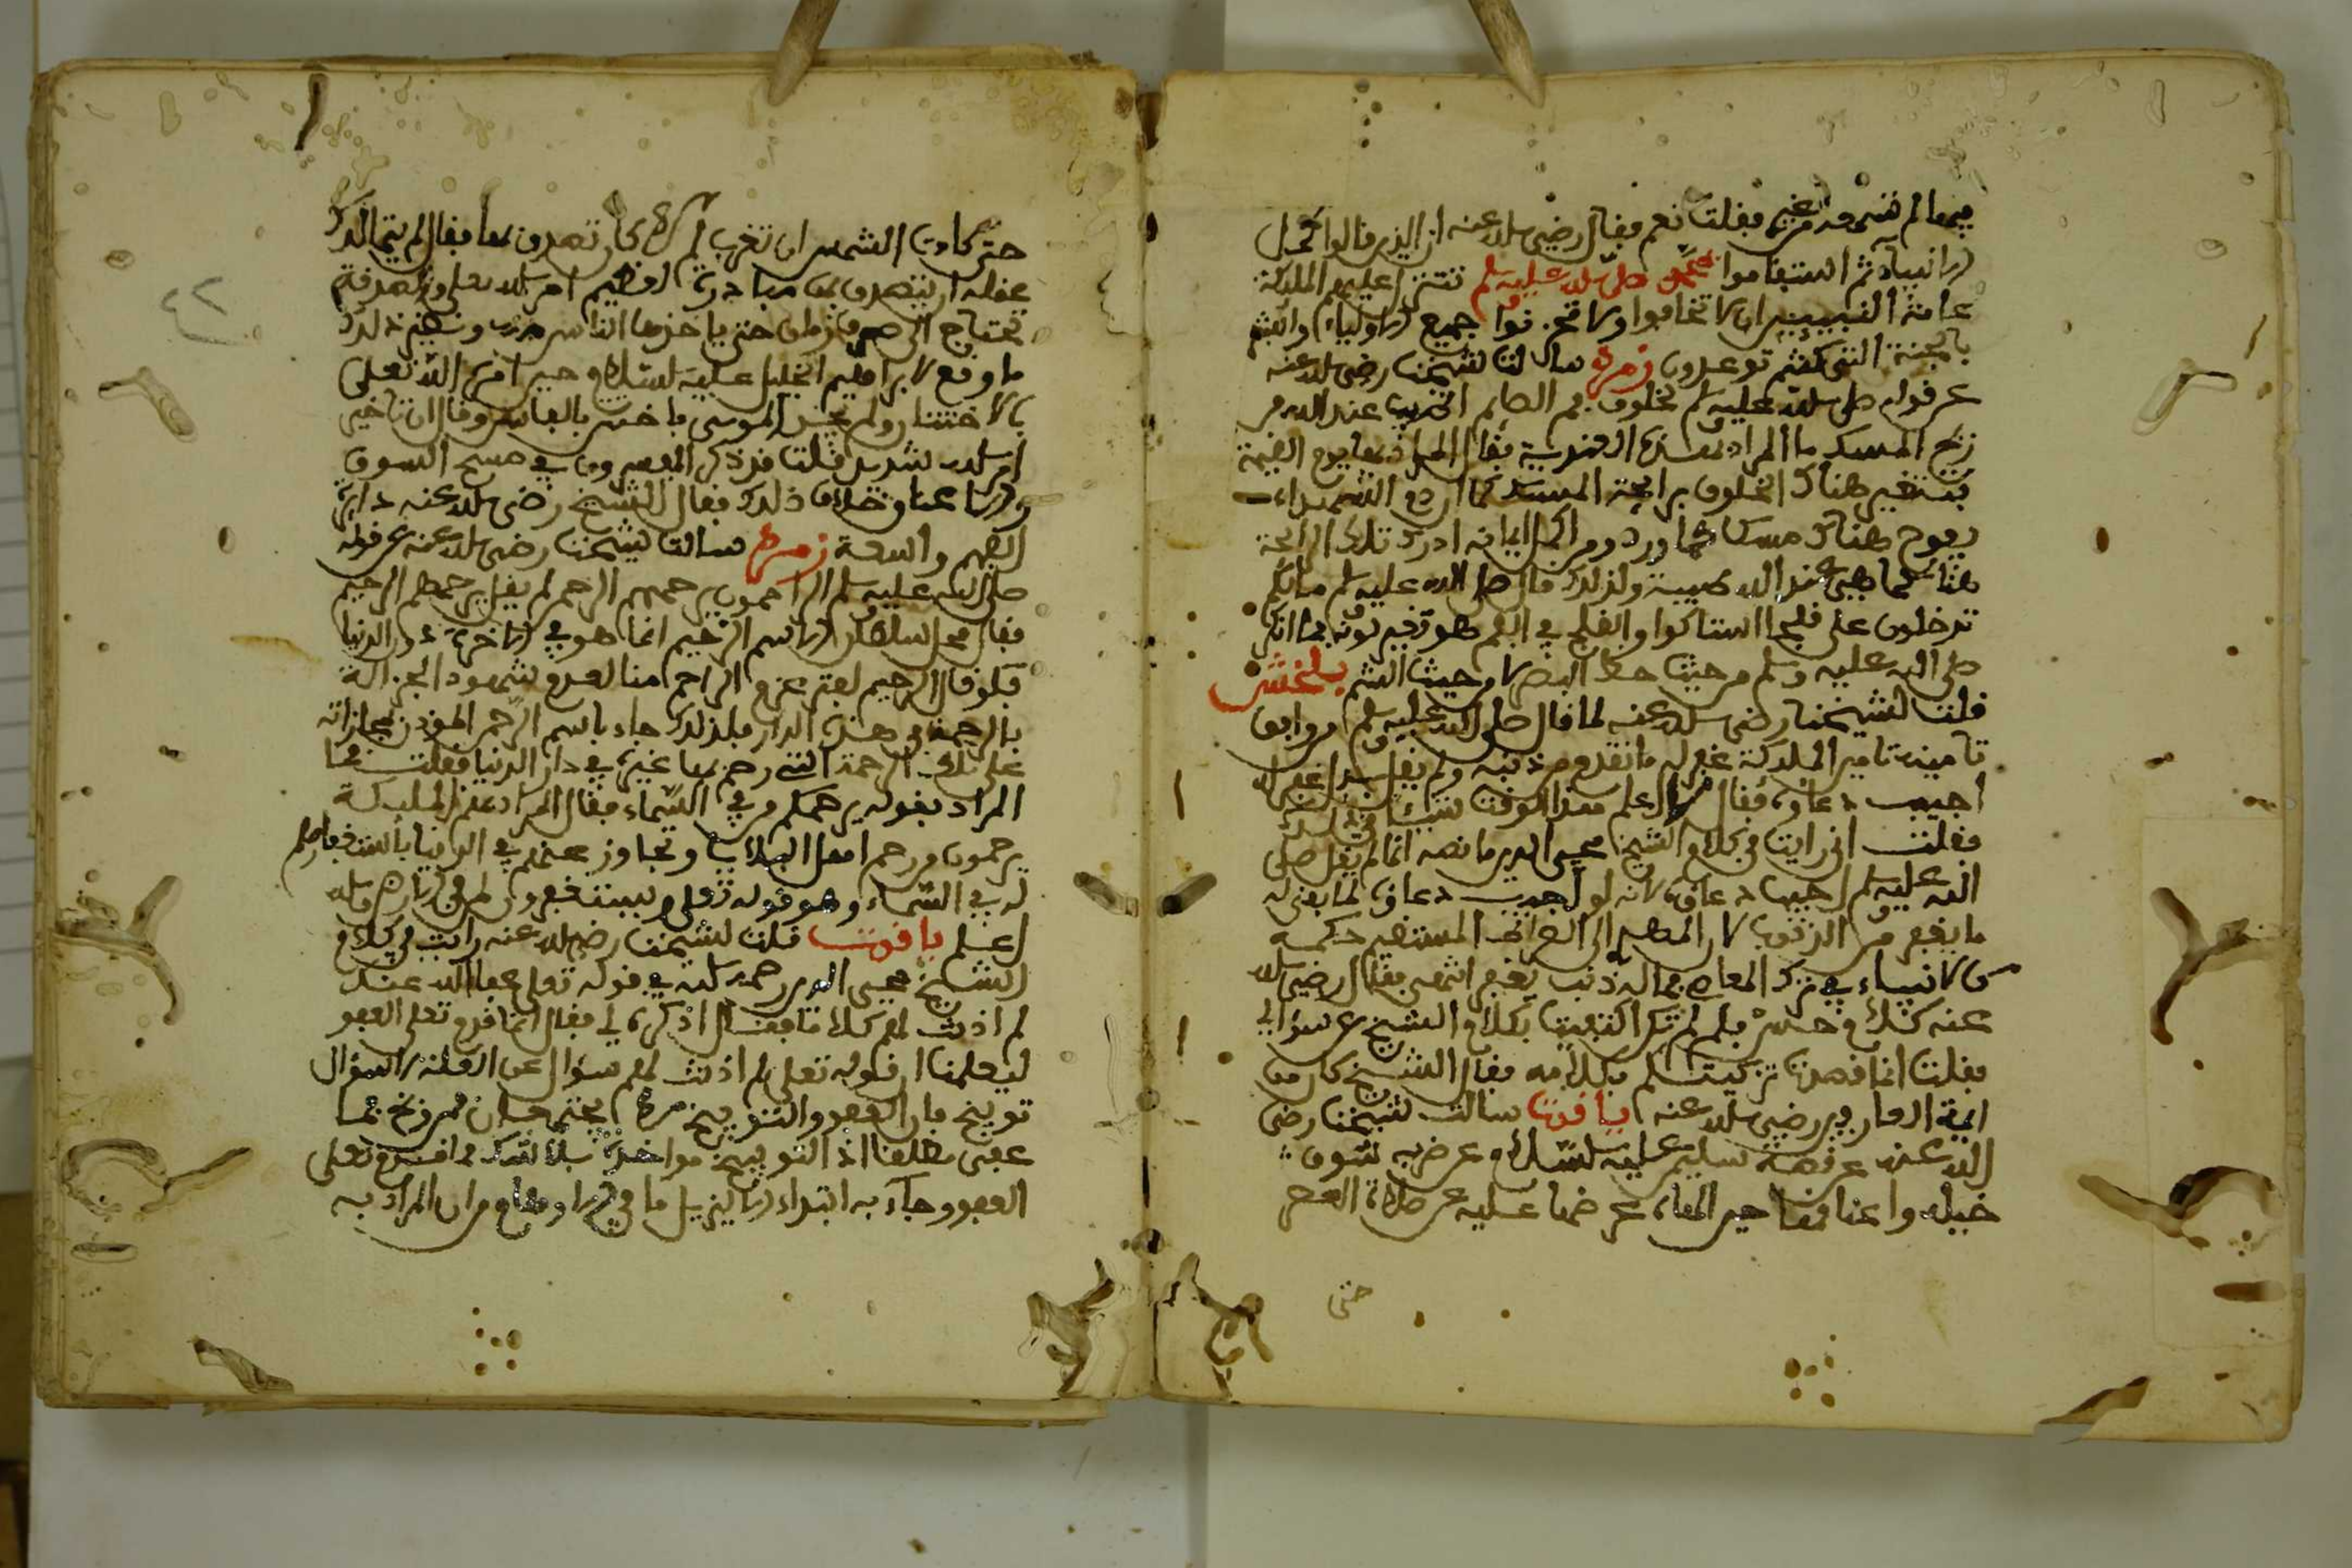 فيما لم تسمعه من غيري فقلت نعم فقال رضي الله عنه ان الذين قالوا كمل
الانبياء ثم استقاموا محمد صلى الله عليه وسلم تتنزل عليهم الملئكة
عامة النبيين ان لا تخافوا ولا تحزنوا جميع الاولياء وابشروا
بالجنة التي كنتم توعدون زمردة سالت شيخنا رضي الله عنه
عن قوله صلى الله عليه وسلم لخلوف فم الصائم اطيب عند الله من
ريح المسك ما المراد بهذه العندية فقال المراد بها يوم القيمة
فيتغير هناك الخلوف برائحة المسك كما ان دم الشهداء
يفوح هناك مسكا كما ورد ومن كمل ايمانه ادرك تلك الرائحة
هنا كما هي عند الله طيبة ولذلك قال صلى الله عليه وسلم مالكم
تدخلون علي قلحا استاكوا والقلح في الفم هو تغير لونه فما انكر
صلى الله عليه وسلم من حيث حظ البصر لا من حيث الشم بلخش
قلت لشيخنا رضي الله عنه لما قال صلى الله عليه وسلم من وافق
تامينه تامين الملائكة غفر له ما تقدم من ذنبه ولم يقل
اجيب دعاؤه فقال لا اعلم هذا الوقت شيئا في ذلك
فقلت اني رايت في كلام الشيخ محيي الدين ما نصه انما لم يقل صلى
الله عليه وسلم اجيب دعاؤه لانه لو اجيب دعاؤه لما بقي له
ما يغفر من الذنوب لان المهدي الى الصراط المستقيم حكمه
حكم الانبياء في ترك المعاصي فما له ذنب يغفر انتهى فقال رضي الله
عنه كلام حسن فلم لم تكن اكتفيت بكلام الشيخ عن سؤالي
فقلت انما قصدت تزكيتكم لكلامه فقال الشيخ كان من
ائمة العارفين رضي الله عنه ياقوت سالت شيخنا رضي
الله عنه عن قصة سليمن عليه السلام عن ضربه سوق
خيله واعناقها حين الهاه عرضها عليه عن صلاة العصر
حتى
٤٢
حتى كادت الشمس ان تغرب لم لا كان تصدق بها فقال لم يتمالك
عقله ان يتصدق بها مبادرة لتعظيم امر الله تعلى والصدقة
تحتاج الى صبر وزمان حتى ياخذها الناس منه ونظير ذلك
ما وقع لابراهيم الخليل عليه السلام حين امره الله تعلى
بالاختتان ولم يجد الموسى فاختتن بالفاس وقال ان تاخير
امر الله شديد قلت قد ذكر المفسرون في مسح السوق
والاعناق خلاف ذلك فقال الشيخ رضي الله عنه دائرة
الفهم واسعة زمردة سالت شيخنا رضي الله عنه عن قوله
صلى الله عليه وسلم الراحمون يرحمهم الرحمن لم لم يقل يرحمهم الرحيم
فقال محل سلطان الاسم الرحيم انما هو في الاخرة دون الدنيا
فلو قال الرحيم لفتر عزم الراحم منا لعدم شهود الجزاء له
بالرحمة في هذه الدار فلذلك جاء باسم الرحمن المؤذن بمجازاته
على تلك الرحمة التي رحم بها غيره في دار الدنيا فقلت فما
المراد بقوله يرحمكم من في السماء فقال المراد بهم الملائكة
يرحمون من رحم اهل البلايا وتجاوز عنهم في الدنيا باستغفارهم
له في السماء وهو قوله تعلى ويستغفرون لمن في الارض والله
اعلم ياقوت قلت لشيخنا رضي الله عنه رايت في كلام
الشيخ محيي الدين رحمه الله في قوله تعلى عفا الله عنك
لم اذنت لهم كلاما فقال اذكره لي فقال انما قدم تعلى العفو
ليعلمنا ان قوله تعلى لم اذنت لهم سؤال عن العلة لا سؤال
توبيخ فان العفو والتوبيخ لا يجتمعان فمن وبخ فما
عفى مطلقا اذ التوبيخ مؤاخذة بلا شك فما قدم تعلى
العفو وجاء به ابتداء الا ليزيل ما في الاوهام من ان المراد به